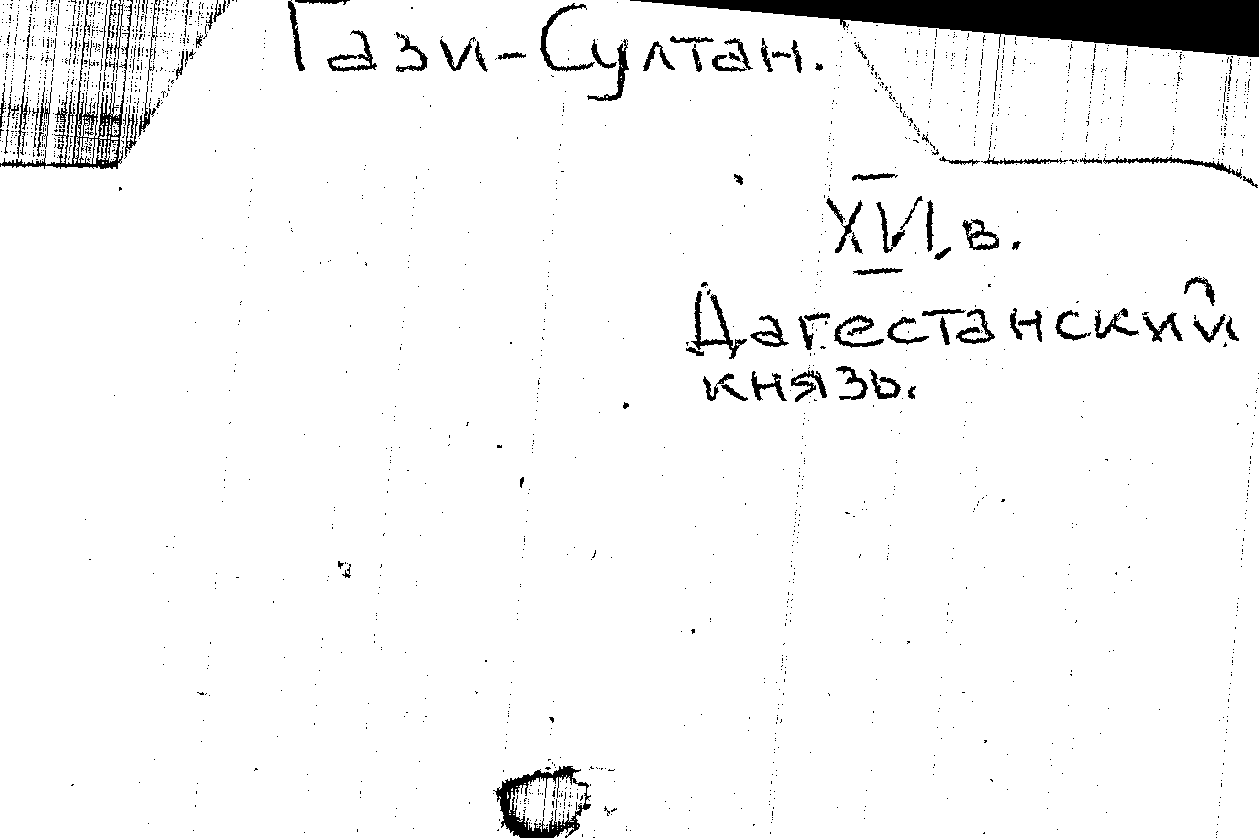 Гази-Султан.
XVI, в.
Дагестанский
князь.